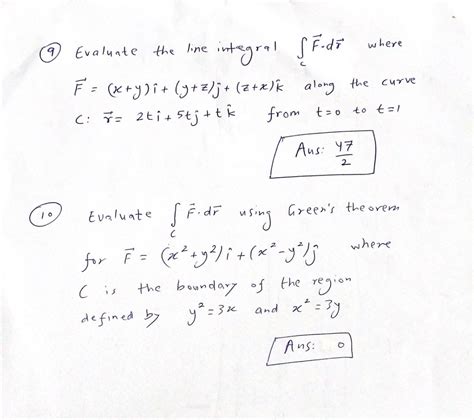 9 Evaluate the line integral ∫_C F⃗·dr⃗ where
F⃗ = (x+y)î + (y+z)ĵ + (z+x)k̂ along the curve
C: r⃗ = 2tî + 5tĵ + tk̂ from t=0 to t=1
Ans: 47/2
10 Evaluate ∫_C F⃗·dr⃗ using Green's theorem
for F⃗ = (x²+y²)î + (x²-y²)ĵ where
C is the boundary of the region
defined by y²=3x and x²=3y
Ans: 0